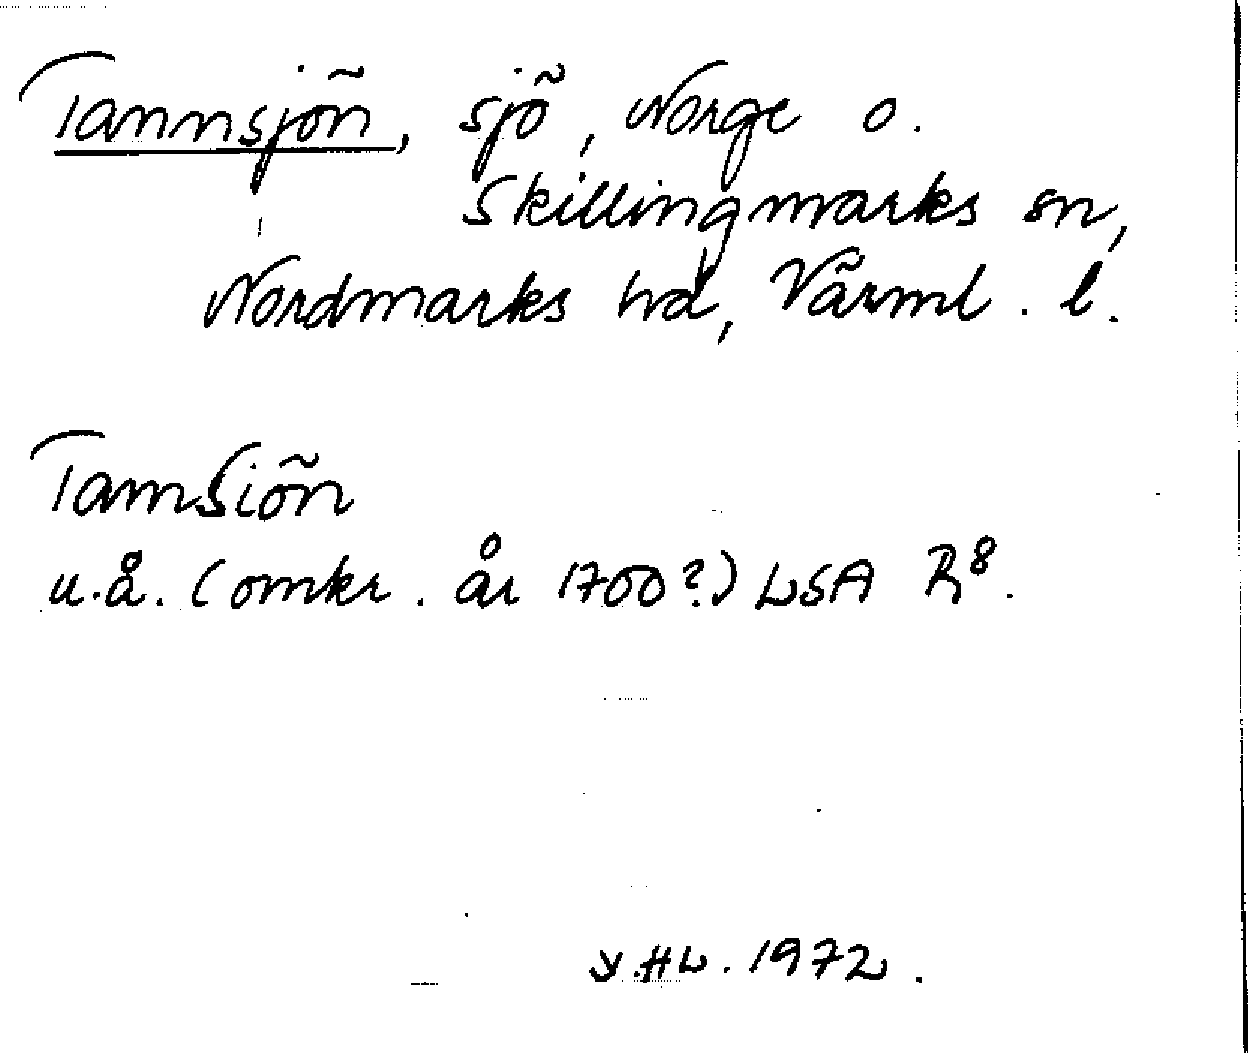 Tannsjön, sjö, Norge o.
Skillingmarks sn,
Nordmarks hd, Värml. l.
Tamsiön
u.å. (omkr. år 1700?) LSA R8.
1972.